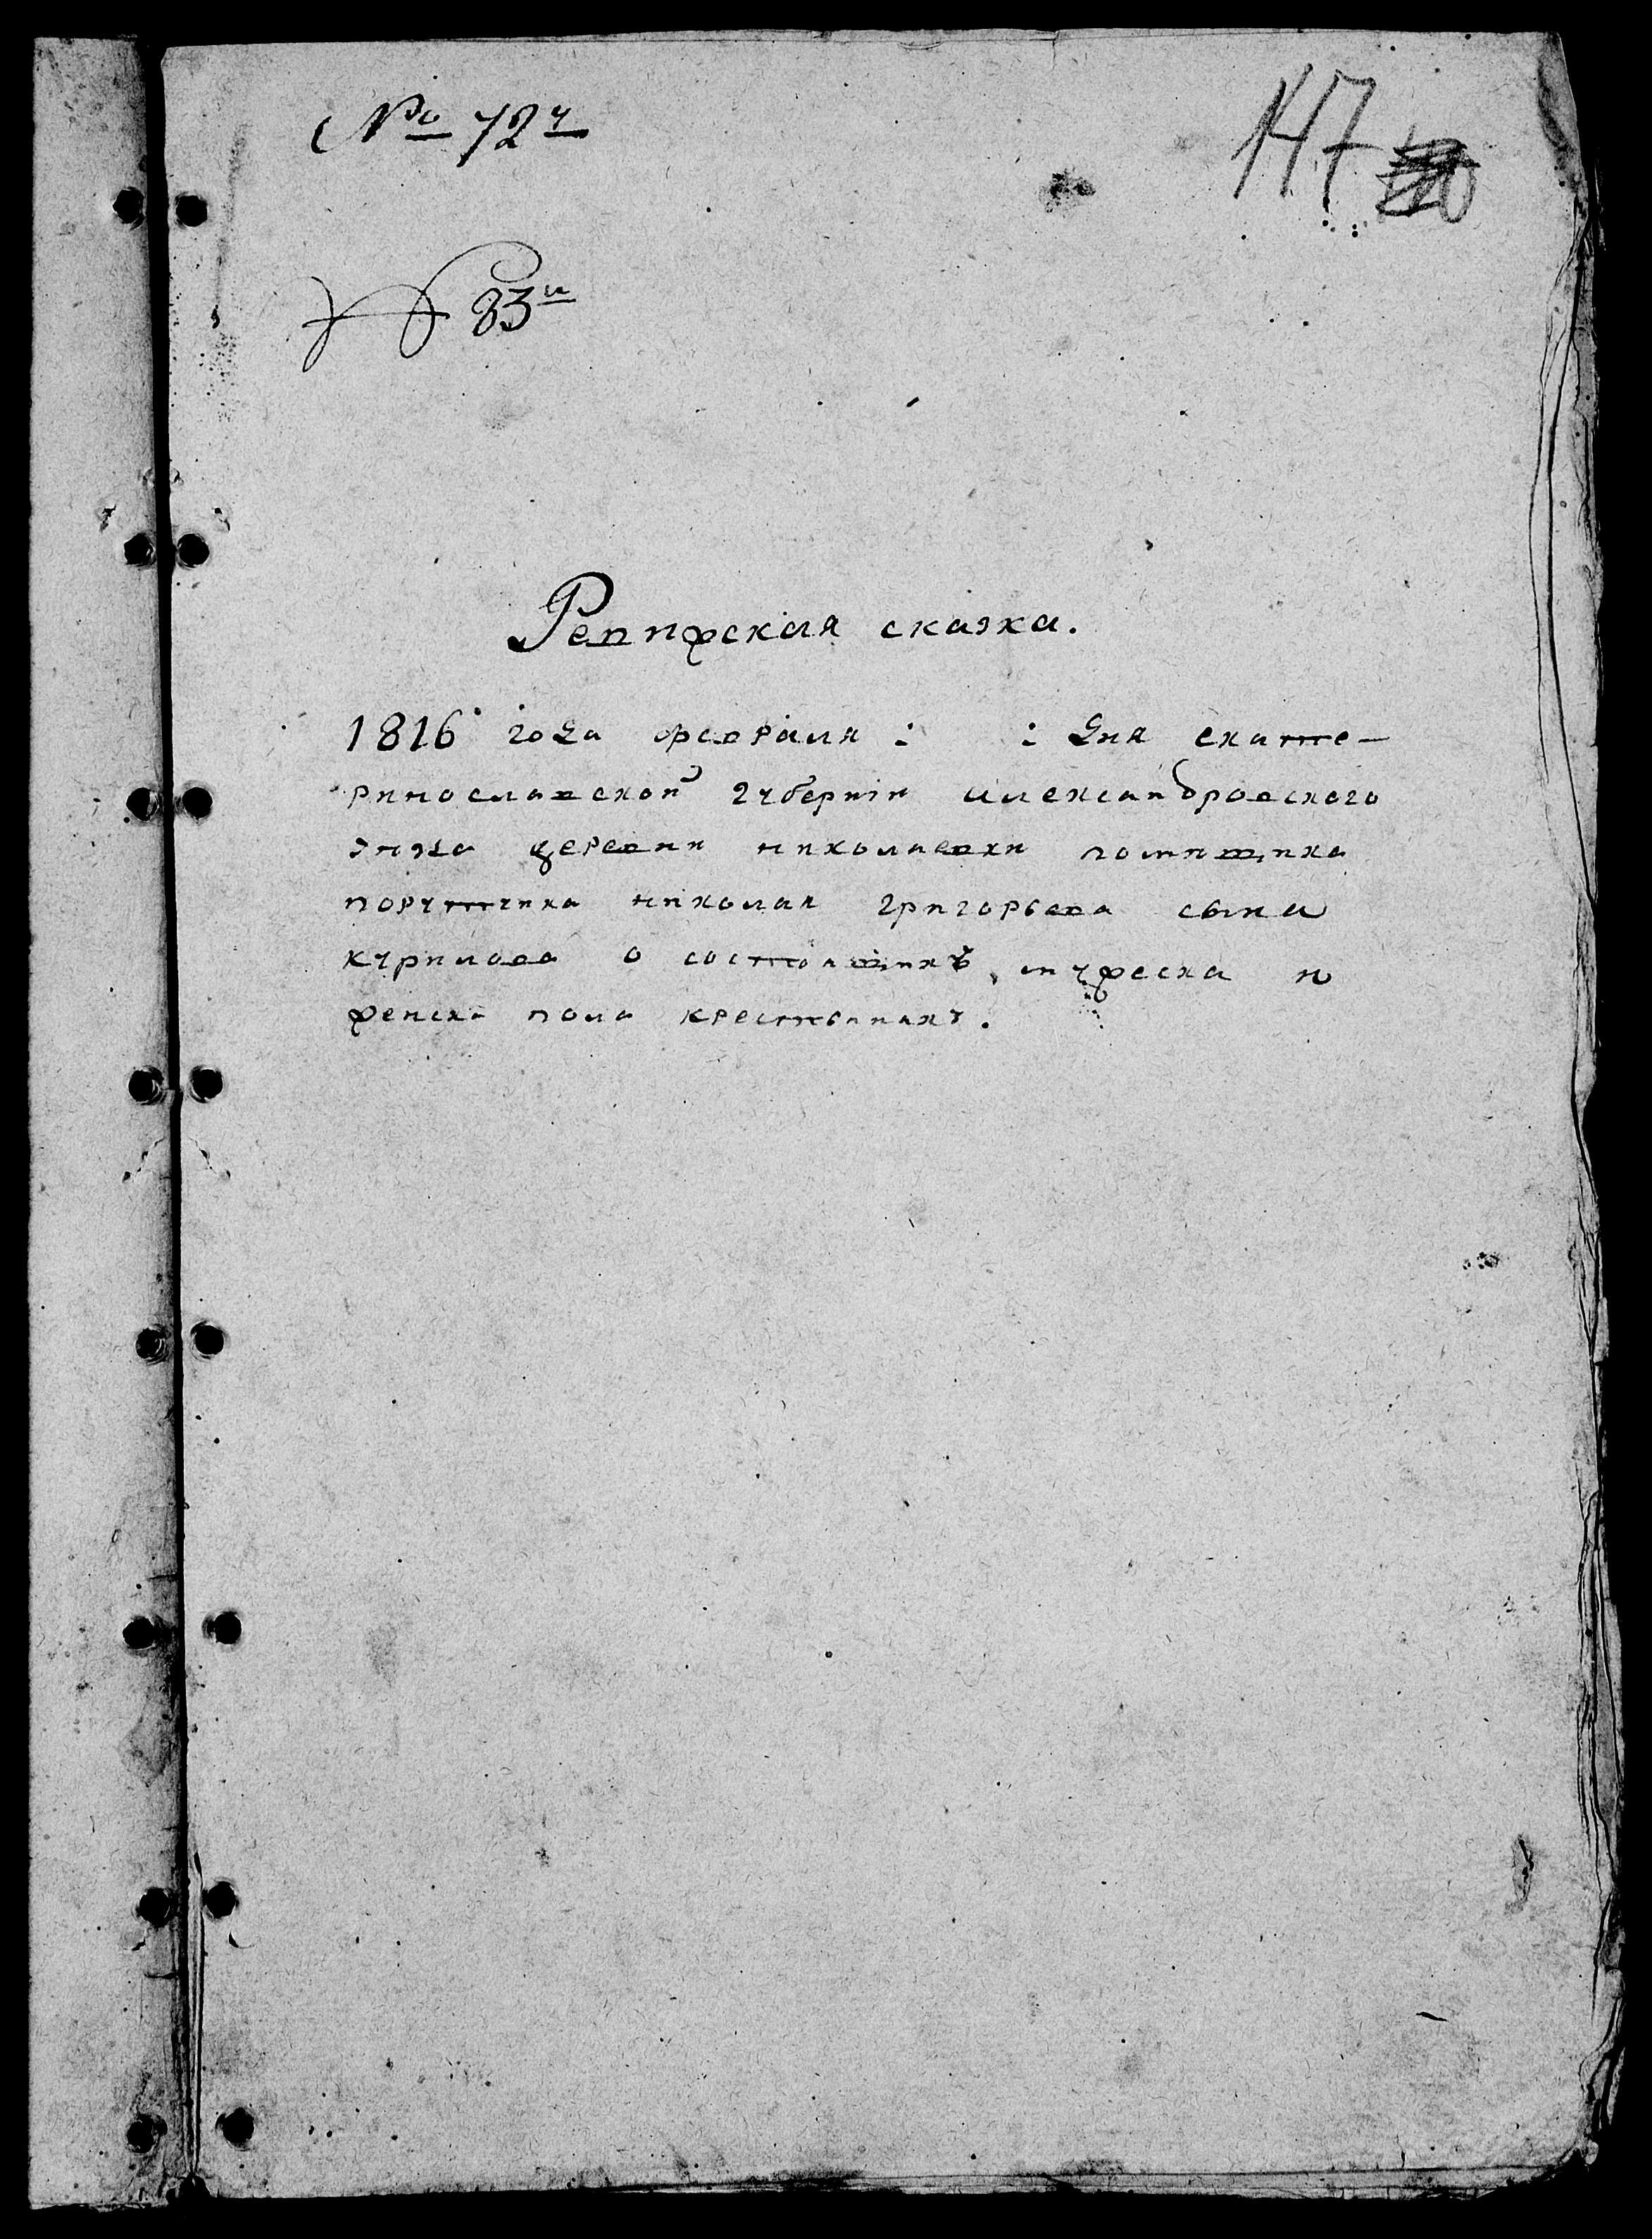 № 72й
147
№ 83й
Ревижская сказка.
1816 года февраля : : дня екате-
ринославской губернии александровского
уезда деревни николаевки помещика
порутчика николая григорьева сына
курилова о состоящихъ мужеска и
женска пола крестьянахъ.